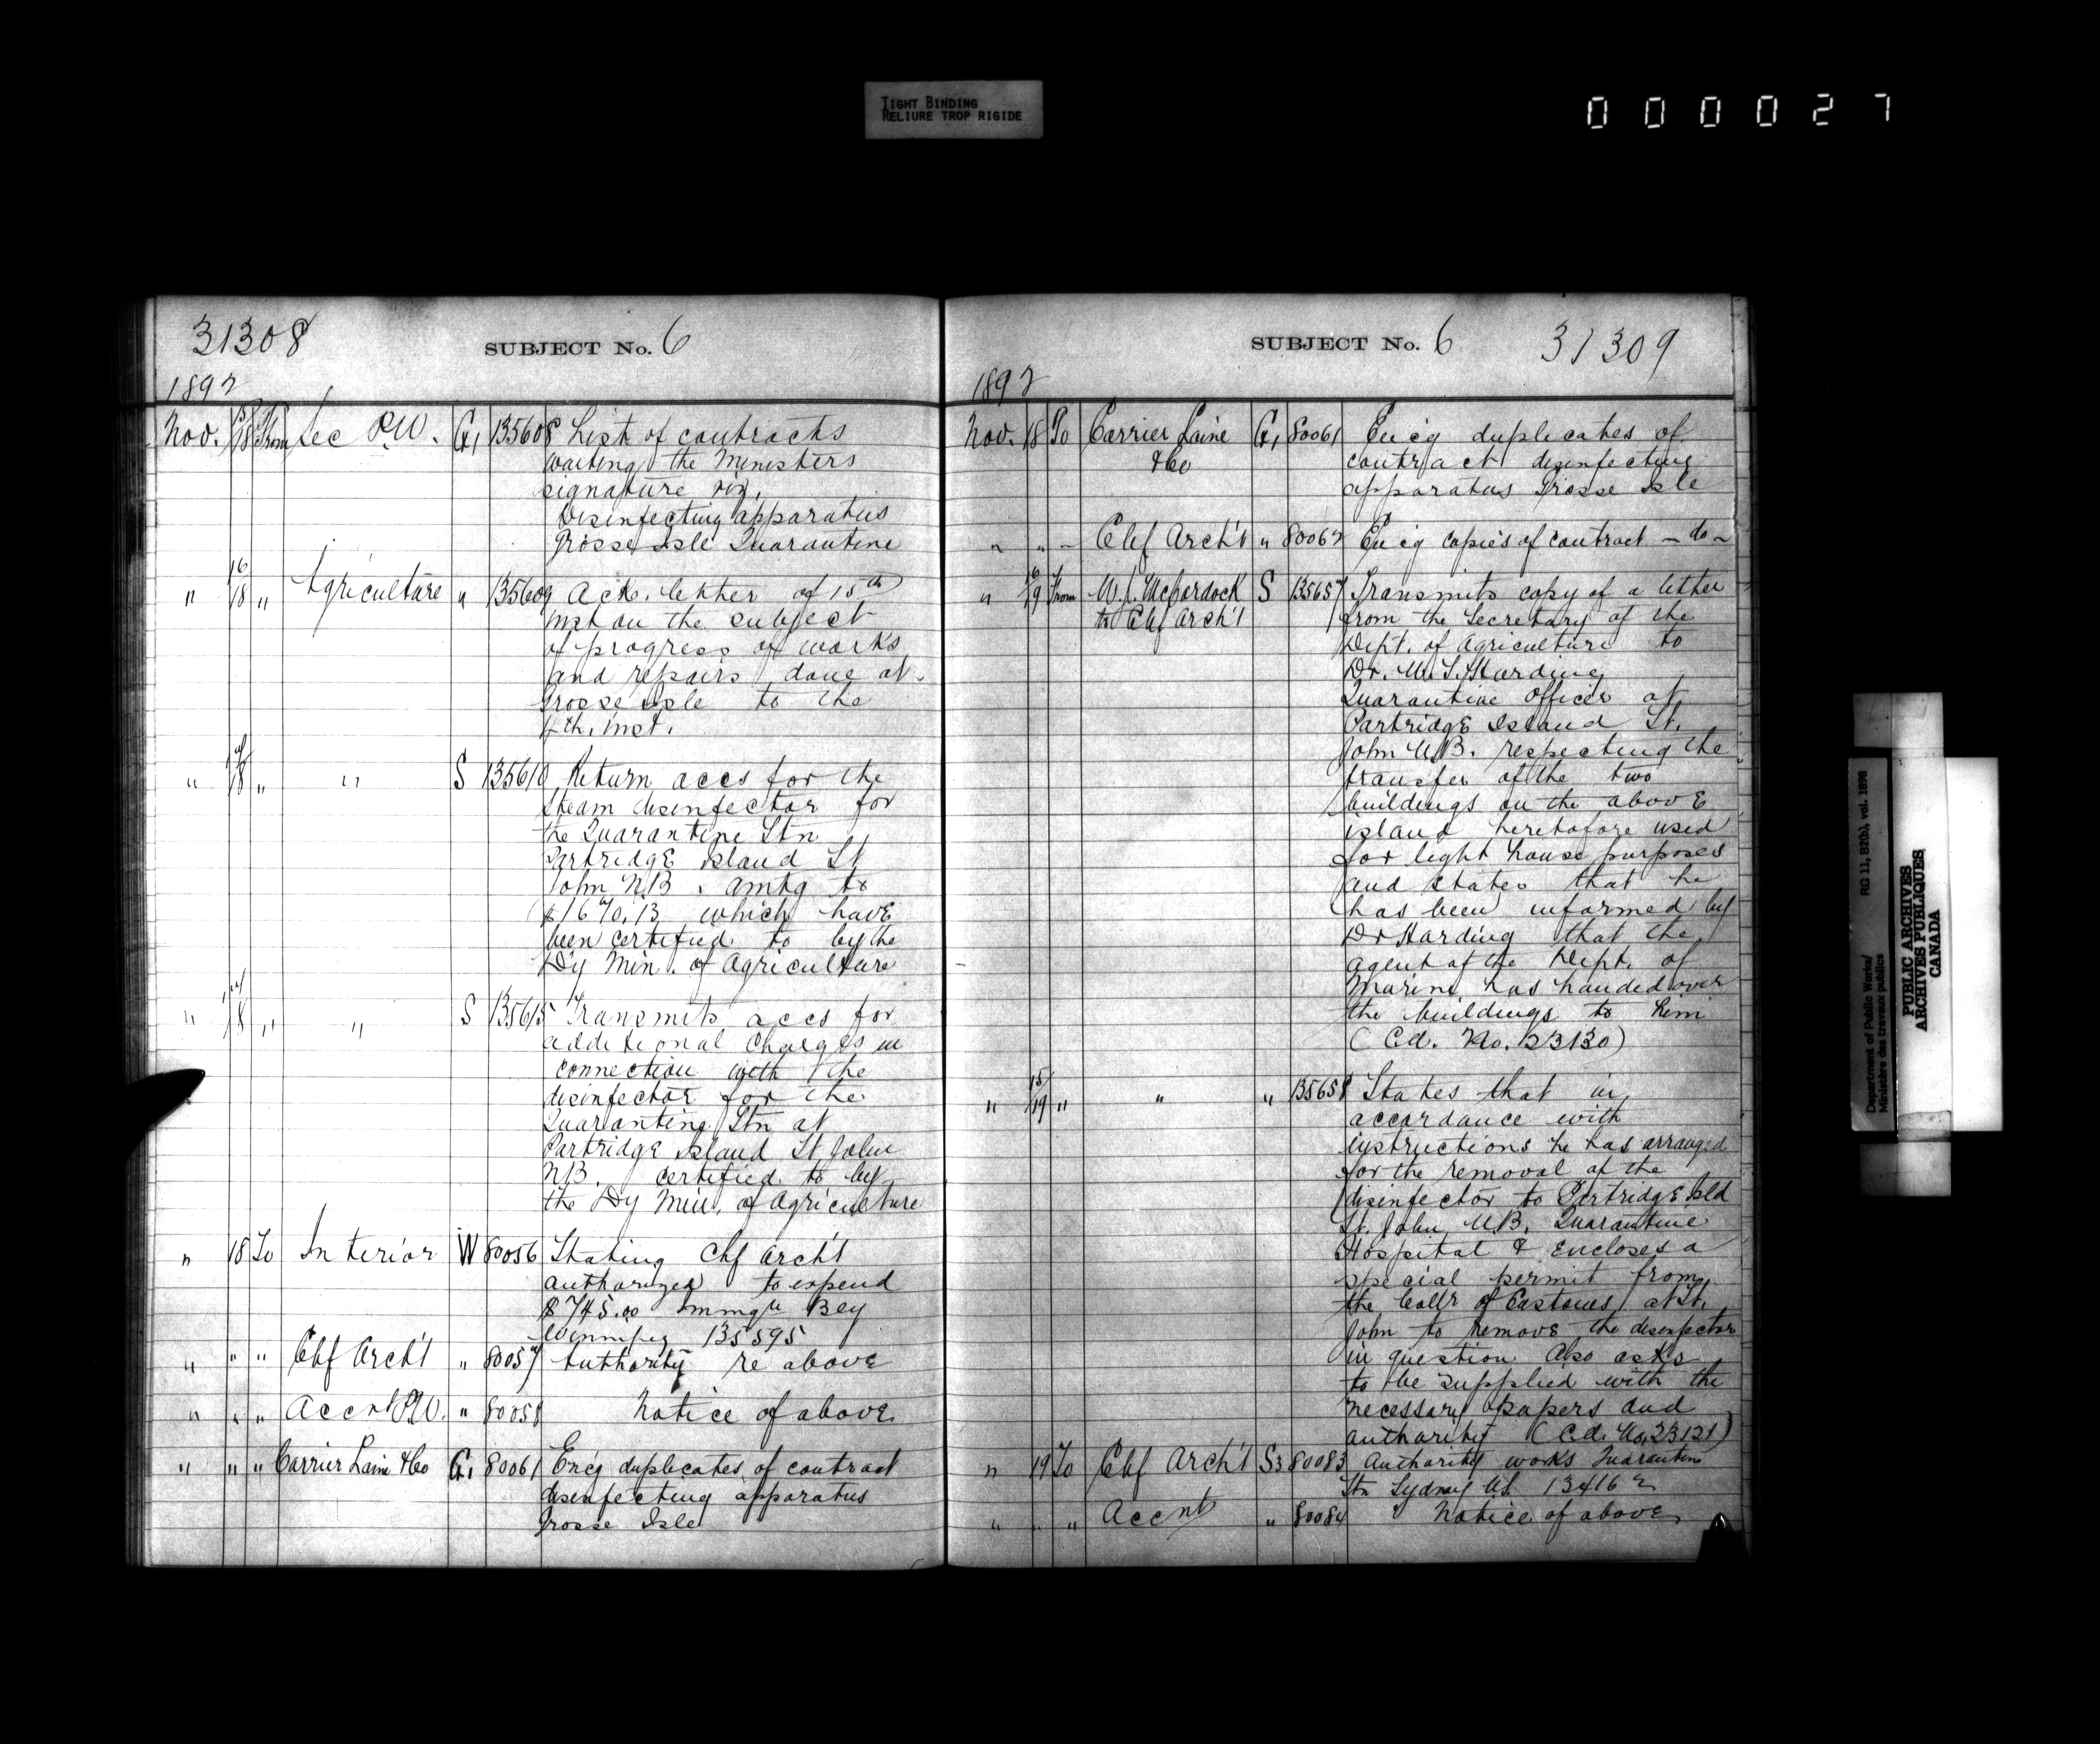 TIGHT BINDING
RELIURE TROP RIGIDE
000027
31308
SUBJECT No. 6
1892
Nov. 18 From Sec P.W. G, 135608 List of contracts
waiting the Ministers
signature viz.
Disinfecting apparatus
Grosse Isle Quarantine
" 16/18 " Agriculture " 135609 Ack. letter of 15th
inst on the subject
of progress of works
and repairs done at
Grosse Isle to the
4th. inst.
" 18 " " S 135610 Return accs for the
steam disinfector for
the Quarantine Stn
Partridge Island St
John N.B. amtg to
$1670.13 which have
been certified to by the
Dy Min. of Agriculture
" 18 " " S 135615 Transmits accs for
additional charges in
connection with the
disinfector for the
Quarantine Stn at
Partridge Island St John
N.B. certified to by
the Dy Min. of Agriculture
" 18 To Interior W 80056 Stating Chf Arch't
authorized to expend
$745.00 Immgn Bdg
Winnipeg 135595
" " " Chf Arch't " 80057 Authority re above
" " " Accnt P.W. " 80058 Notice of above
" " " Carrier Laine & Co G, 80061 Enc'g duplicates of contract
disinfecting apparatus
Grosse Isle
SUBJECT No. 6
31309
1892
Nov. 18 To Carrier Laine G, 80061 Enc'g duplicates of
& Co contract disinfecting
apparatus Grosse Isle
" " " Chf Arch't " 80062 Enc'g copies of contract - do -
" 16/19 From W. J. McCordock S 135657 Transmits copy of a letter
to Chf Arch't from the Secretary of the
Dept. of Agriculture to
Dr. W. S. Harding
Quarantine Officer at
Partridge Island St.
John N.B. respecting the
transfer of the two
buildings on the above
island heretofore used
for light house purposes
and states that he
has been informed by
Dr Harding that the
agent of the Dept. of
Marine has handed over
the buildings to him
(C.d. No. 23130)
" 15/19 " " " 135658 States that in
accordance with
instructions he has arranged
for the removal of the
disinfector to Partridge Isld
St. John N.B. Quarantine
Hospital & encloses a
special permit from
the Collr of Customs at St.
John to remove the disinfector
in question Also asks
to be supplied with the
necessary papers and
authority (C.d. No. 23121)
" 19 To Chf Arch't S3 80083 Authority works Quarantine
Stn Sydney N.S. 134162
" " " Accnt " 80084 Notice of above
Department of Public Works/ RG 11, B2(b), vol. 1898
Ministère des travaux publics
PUBLIC ARCHIVES
ARCHIVES PUBLIQUES
CANADA